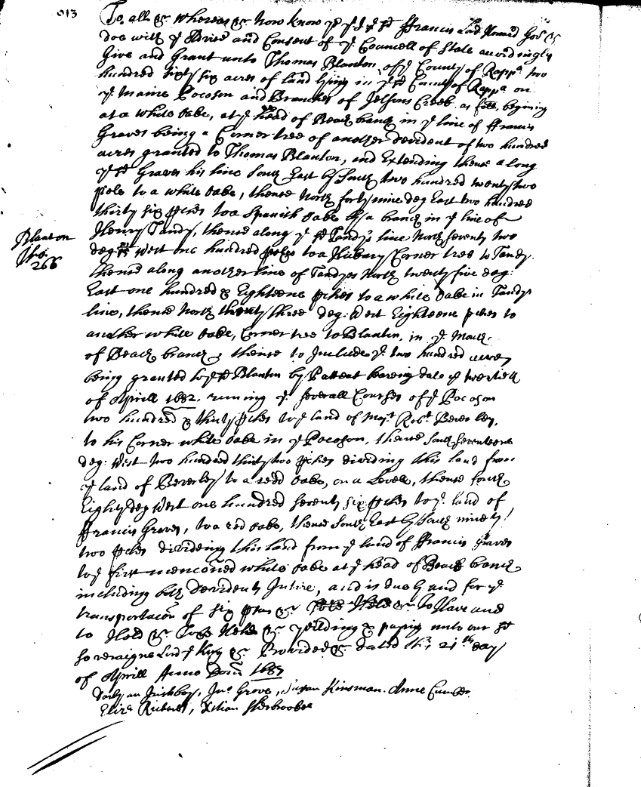 613
To all &c Whereas &c Now know ye yt I ye sd Francis Lord Howard Govr &c
doe with ye Advice and Consent of ye Councell of State accordingly
Give and Grant unto Thomas Blanton, of ye County of Rappa two
hundred sixty six acres of land lying in ye sd County of Rappa on
ye Maine Pocoson and Branches of Creek as foll: begining
at a white oake, at ye head of Beach banck in ye line of Francis
Graves being a Corner tree of another devident of two hundred
acres granted to Thomas Blanton, and Extending thence along
ye sd Graves his line South East by South two hundred twenty two
pole to a white oake, thence North forty nine deg East two hundred
thirty six pches to a Spanish oake by a banck in ye line of
Henry Tandy, thence along ye sd Tandys line North seventy two
degrs West one hundred poles to a Hickory Corner tree to Tandy.
thence along another line of Tandys North twenty five deg:
East one hundred & Eighteene pches to a white oake in Tandys
line, thence North twenty three deg: West Eighteene pches to
another white oake, Corner tree to Blanton, in ye Mouth
of Beach banck, thence to Include ye two hundred acres
being granted to ye sd Blanton by Pattent bearing date ye
of Aprill 1682. runing ye severall Courses of ye Pocoson
two hundred & thirty pches to ye land of Majr Robt Beverley,
to his Corner white oake in ye Pocoson, thence South seventeene
deg: West two hundred thirty two pches dividing this land from
ye land of Beverley to a redd oake, on a Levell, thence South
Eighty deg West one hundred seventy six pches to ye land of
Francis Graves, to a red oake, thence South East by South ninety
two pches divideing this land from ye land of Francis Graves
to ye first mencioned white oake at ye head of Beach banck
including both Devidents Intire, and is due by and for ye
transportacon of six psons &c To Have and
to Hold &c To be Held &c Yeilding & paying unto our sd
Soveraigne Lord ye King &c Provided &c dated this 21th day
of Aprill Anno Dom 1687
an Irish boy, Jno Grove, Susan Kinsman. Anne
Eliza
Blanton
266